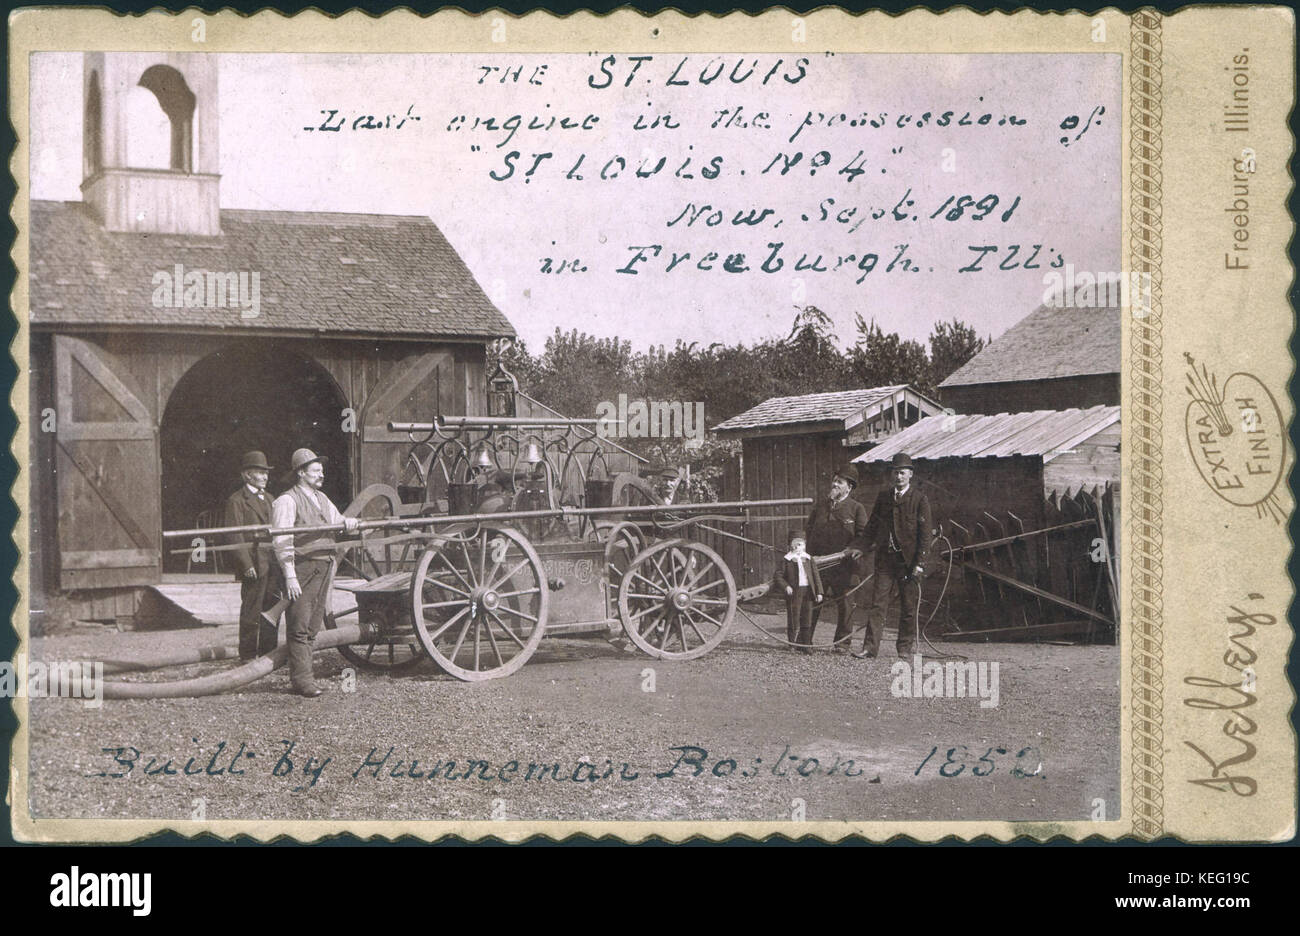 THE "ST. LOUIS"
Last engine in the possession of
"ST LOUIS. No 4."
Now, Sept. 1891
in Freeburgh. Ill's
Built by Hunneman Boston, 1850.
Freeburg, Illinois.
EXTRA
FINISH
Kelley,
alamy
alamy stock photo
KEG19C
www.alamy.com